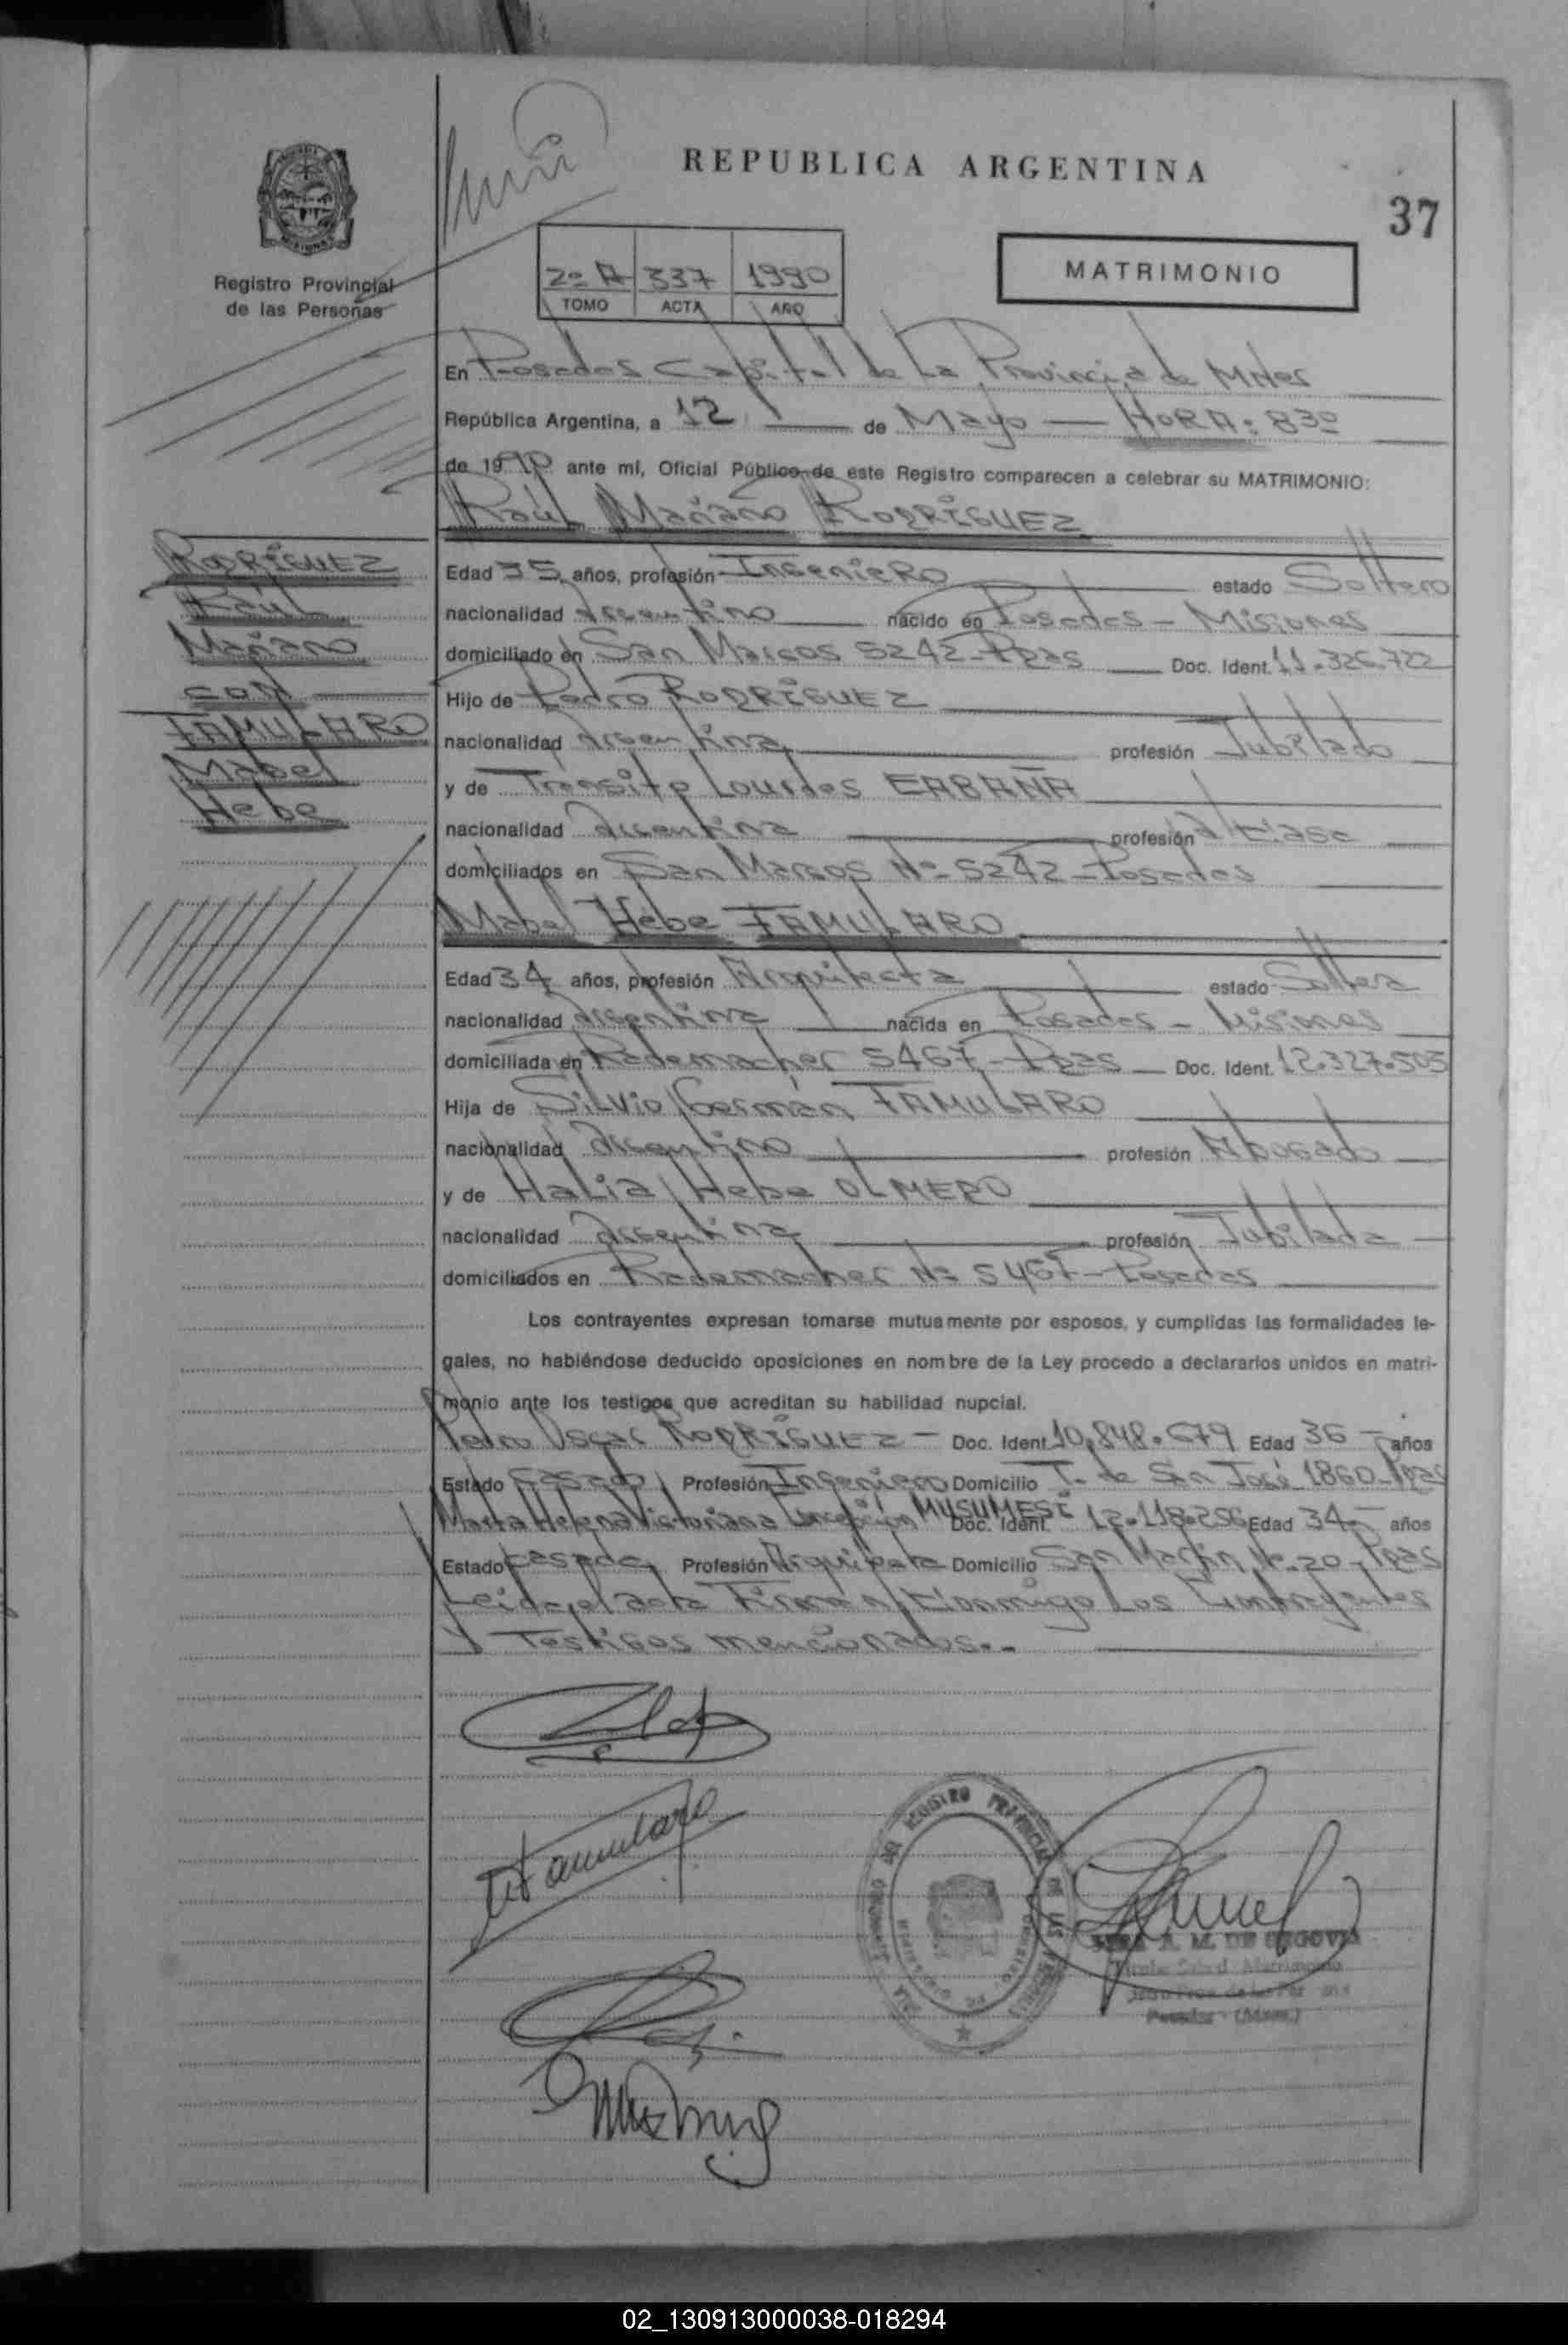 REPUBLICA ARGENTINA
37
Registro Provincial
de las Personas
2º A 337 1990
TOMO ACTA AÑO
MATRIMONIO
En Posadas Capital de La Provincia de Mnes
República Argentina, a 12 de Mayo HORA: 830
de 1990 ante mí, Oficial Público de este Registro comparecen a celebrar su MATRIMONIO:
Raúl Mariano RODRÍGUEZ
RODRÍGUEZ
Raúl
Mariano
con
FAMULARO
Mabel
Hebe
Edad 35 años, profesión Ingeniero estado Soltero
nacionalidad Argentino nacido en Posadas - Misiones
domiciliado en San Marcos 5242 - Pdas Doc. Ident. 11.326.722
Hijo de Pedro RODRÍGUEZ
nacionalidad Argentina profesión Jubilado
y de Transito Lourdes CABAÑA
nacionalidad Argentina profesión
domiciliados en San Marcos Nº 5242 - Posadas
Mabel Hebe FAMULARO
Edad 34 años, profesión Arquitecta estado Soltera
nacionalidad Argentina nacida en Posadas - Misiones
domiciliada en Rademacher 5467 - Pdas Doc. Ident. 12.327.505
Hija de Silvio Germán FAMULARO
nacionalidad Argentino profesión Abogado
y de Halia Hebe OLMEDO
nacionalidad Argentina profesión Jubilada
domiciliados en Rademacher Nº 5467 - Posadas
Los contrayentes expresan tomarse mutuamente por esposos, y cumplidas las formalidades le-
gales, no habiéndose deducido oposiciones en nombre de la Ley procedo a declararlos unidos en matri-
monio ante los testigos que acreditan su habilidad nupcial.
Pedro Oscar RODRÍGUEZ - Doc. Ident. 10.848.679 Edad 36 años
Estado Casado Profesión Ingeniero Domicilio T. de San José 1860 - Pdas
Marta Helena Victoriana Concepción MUSUMESI Doc. Ident. 12.118.256 Edad 34 años
Estado Casada Profesión Arquitecta Domicilio San Martín Nº 20 - Pdas
Leida el acta Firman Conmigo Los Contrayentes
y Testigos mencionados.-
Famularo
A. M. DE SEGOVIA
Posadas - (Mnes.)
02_130913000038-018294